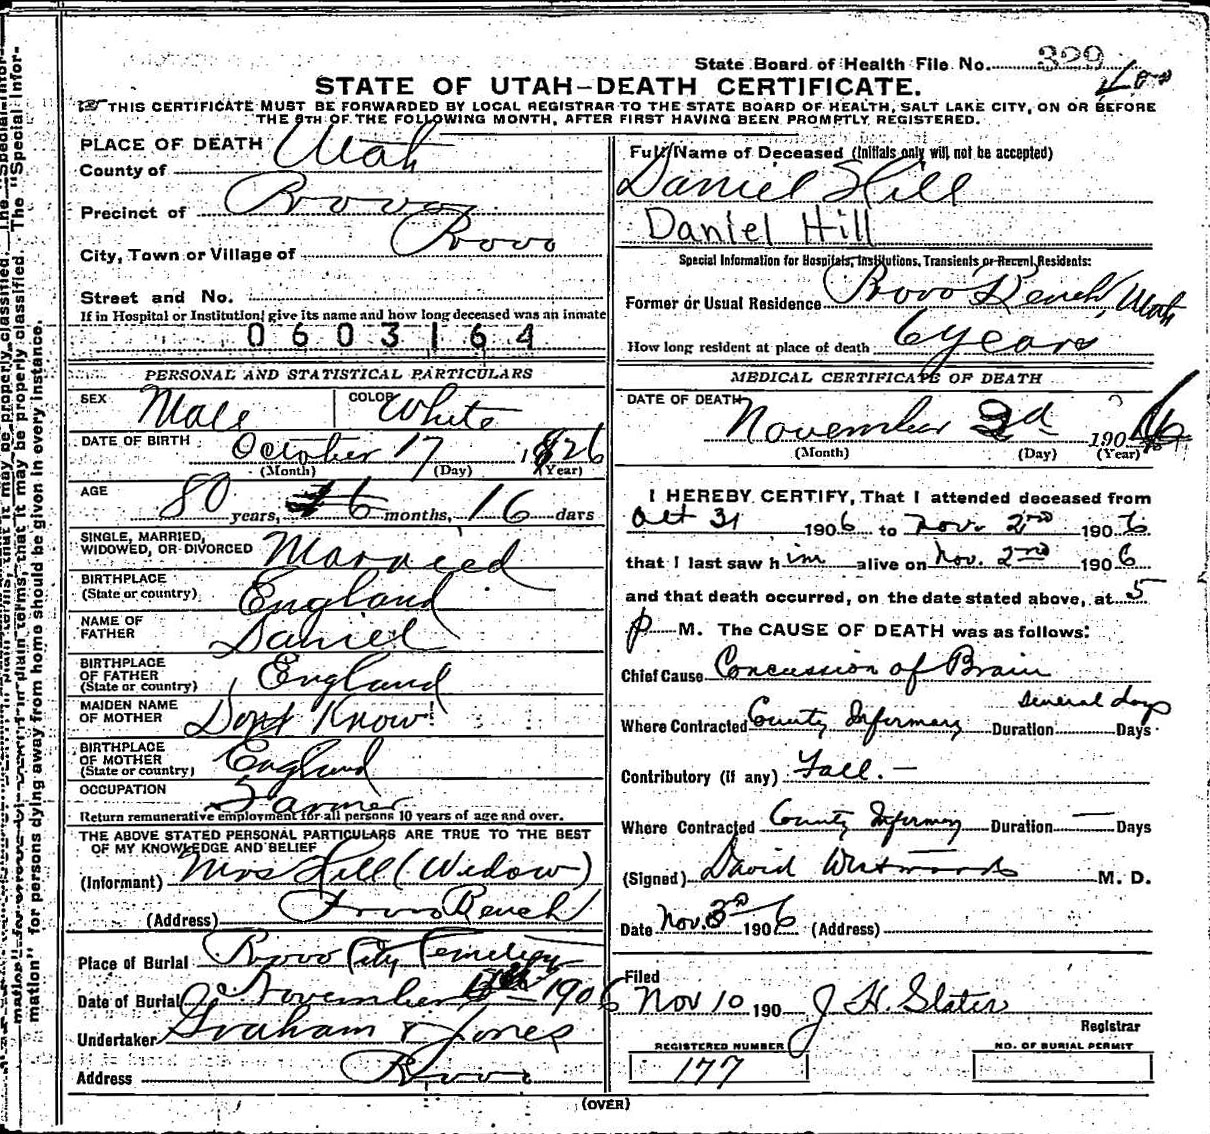 State Board of Health File No. 329
STATE OF UTAH—DEATH CERTIFICATE.
THIS CERTIFICATE MUST BE FORWARDED BY LOCAL REGISTRAR TO THE STATE BOARD OF HEALTH, SALT LAKE CITY, ON OR BEFORE
THE 8TH OF THE FOLLOWING MONTH, AFTER FIRST HAVING BEEN PROMPTLY REGISTERED.
PLACE OF DEATH
County of Utah
Precinct of Provo
City, Town or Village of Provo
Street and No.
If in Hospital or Institution, give its name and how long deceased was an inmate
0603164
PERSONAL AND STATISTICAL PARTICULARS
SEX Male COLOR White
DATE OF BIRTH October 17 1826
(Month) (Day) (Year)
AGE 80 years, months, 16 days
SINGLE, MARRIED,
WIDOWED, OR DIVORCED Married
BIRTHPLACE
(State or country) England
NAME OF
FATHER Daniel
BIRTHPLACE
OF FATHER
(State or country) England
MAIDEN NAME
OF MOTHER Dont Know
BIRTHPLACE
OF MOTHER
(State or country) England
OCCUPATION Farmer
Return remunerative employment for all persons 10 years of age and over.
THE ABOVE STATED PERSONAL PARTICULARS ARE TRUE TO THE BEST
OF MY KNOWLEDGE AND BELIEF
(Informant) Mrs Hill (Widow)
(Address) Provo Bench
Place of Burial Provo City Cemetery
Date of Burial November 1906
Undertaker Graham & Jones
Address Provo
Full Name of Deceased (Initials only will not be accepted)
Daniel Hill
Daniel Hill
Special Information for Hospitals, Institutions, Transients or Recent Residents:
Former or Usual Residence Provo Bench, Utah
How long resident at place of death 6 years
MEDICAL CERTIFICATE OF DEATH
DATE OF DEATH
November 2d 1906
(Month) (Day) (Year)
I HEREBY CERTIFY, That I attended deceased from
Oct 31 1906 to Nov. 2nd 1906
that I last saw him alive on Nov. 2nd 1906
and that death occurred, on the date stated above, at 5
p M. The CAUSE OF DEATH was as follows:
Chief Cause Concussion of Brain
Where Contracted County Infirmary Duration Several days Days
Contributory (if any) Fall. —
Where Contracted County Infirmary Duration — Days
(Signed) David Westwood M. D.
Date Nov. 3d 1906 (Address)
Filed
Nov 10 190 J H. Slater
Registrar
REGISTERED NUMBER
177
NO. OF BURIAL PERMIT
(OVER)
mation" for persons dying away from home should be given in every instance.